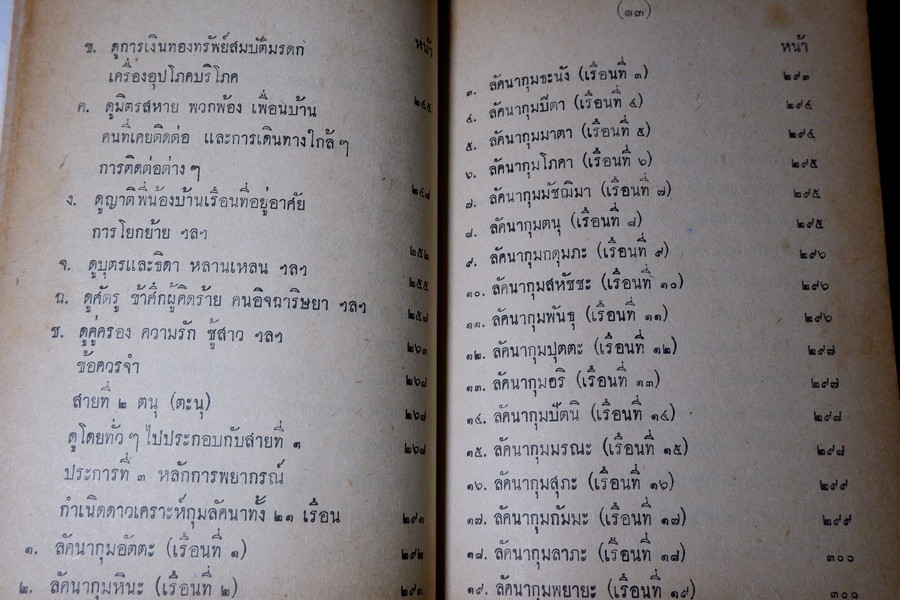 หน้า
ข. ดูการเงินทองทรัพย์สมบัติมรดก
เครื่องอุปโภคบริโภค ๒๔๕
ค. ดูมิตรสหาย พวกพ้อง เพื่อนบ้าน
คนที่เคยติดต่อ และการเดินทางใกล้ๆ
การติดต่อต่างๆ ๒๔๘
ง. ดูญาติพี่น้องบ้านเรือนที่อยู่อาศัย
การโยกย้าย ฯลฯ ๒๕๒
จ. ดูบุตรและธิดา หลานเหลน ฯลฯ ๒๕๕
ฉ. ดูศัตรู ข้าศึกผู้คิดร้าย คนอิจฉาริษยา ฯลฯ ๒๕๘
ช. ดูคู่ครอง ความรัก ชู้สาว ฯลฯ ๒๖๓
ข้อควรจำ ๒๖๘
สายที่ ๒ ตนุ (ตะนุ) ๒๖๘
ดูโดยทั่วๆ ไปประกอบกับสายที่ ๑ ๒๖๘
ประการที่ ๓ หลักการพยากรณ์
กำเนิดดาวเคราะห์กุมลัคนาทั้ง ๒๑ เรือน ๒๙๑
๑. ลัคนากุมอัตตะ (เรือนที่ ๑) ๒๙๒
๒. ลัคนากุมหินะ (เรือนที่ ๒) ๒๙๓
(๑๓)
หน้า
๓. ลัคนากุมธะนัง (เรือนที่ ๓) ๒๙๓
๔. ลัคนากุมปิตา (เรือนที่ ๔) ๒๙๔
๕. ลัคนากุมมาตา (เรือนที่ ๕) ๒๙๔
๖. ลัคนากุมโภคา (เรือนที่ ๖) ๒๙๕
๗. ลัคนากุมมัชฌิมา (เรือนที่ ๗) ๒๙๕
๘. ลัคนากุมตนุ (เรือนที่ ๘) ๒๙๕
๙. ลัคนากุมกดุมภะ (เรือนที่ ๙) ๒๙๖
๑๐. ลัคนากุมสหัชชะ (เรือนที่ ๑๐) ๒๙๖
๑๑. ลัคนากุมพันธุ (เรือนที่ ๑๑) ๒๙๖
๑๒. ลัคนากุมปุตตะ (เรือนที่ ๑๒) ๒๙๗
๑๓. ลัคนากุมอริ (เรือนที่ ๑๓) ๒๙๗
๑๔. ลัคนากุมปัตนิ (เรือนที่ ๑๔) ๒๙๘
๑๕. ลัคนากุมมรณะ (เรือนที่ ๑๕) ๒๙๘
๑๖. ลัคนากุมสุภะ (เรือนที่ ๑๖) ๒๙๙
๑๗. ลัคนากุมกัมมะ (เรือนที่ ๑๗) ๒๙๙
๑๘. ลัคนากุมลาภะ (เรือนที่ ๑๘) ๓๐๐
๑๙. ลัคนากุมพยายะ (เรือนที่ ๑๙) ๓๐๐